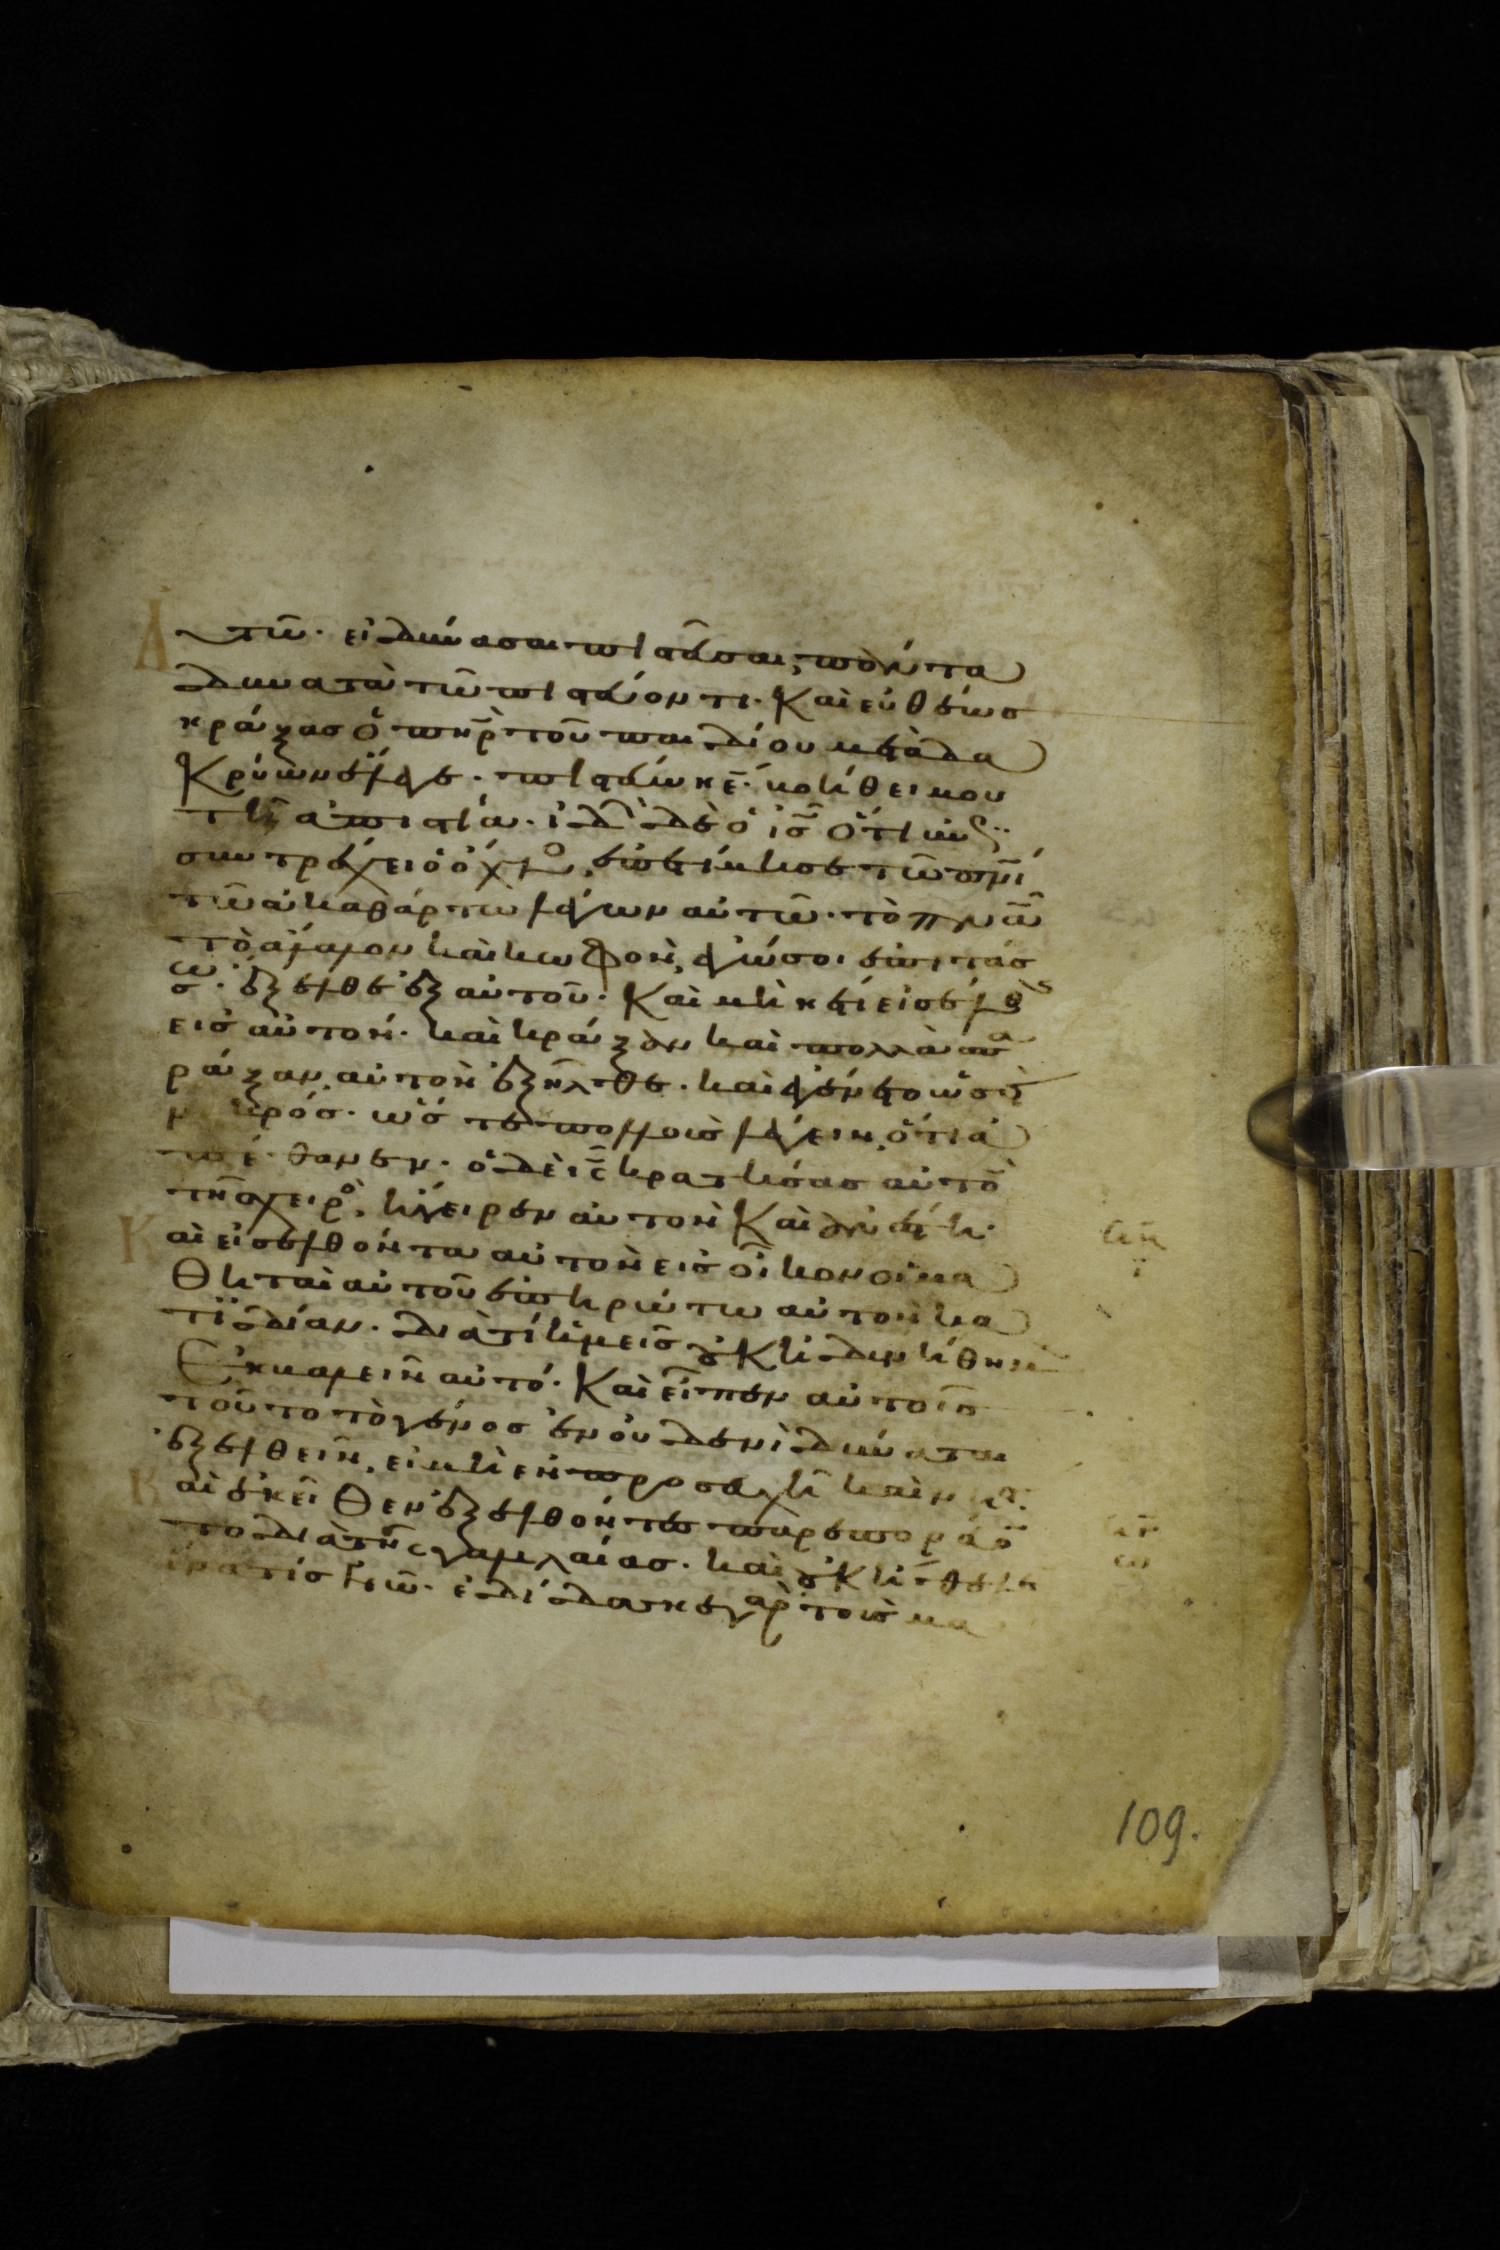 τῶ. εἰ δύνασαι πιστεῦσαι, πάντα
δυνατὰ τῶ πιστεύοντι. Καὶ εὐθέως
κράξας ὁ πηρ τοῦ παιδίου μετὰ δα
Κρύων ἔλεγε. πιστεύω κε. βοήθει μου
τῆ ἀπιστία. ἰδὼν δὲ ὁ ις ὅτι
συντρέχει ὁ ὄχλο, ἐπετίμησε τῶ πνι
τῶ ἀκαθάρτω λέγων αὐτῶ. τὸ πνα
τὸ ἄλαλον καὶ κωφὸν, ἐγώ σοι ἐπιτάσ
σω. ἔξελθε ἐξ αὐτοῦ. Καὶ μηκέτι εἰσέλθ
εις αὐτόν. καὶ κράξαν καὶ πολλὰ σπα
ράξαν αὐτὸν ἐξῆλθε. καὶ ἐγένετο ὡσεὶ
νεκρός. ὥστε πολλοὺς λέγειν, ὅτι ἀ
πέθανεν. ὁ δὲ ις κρατήσας αὐτὸ
τῆς χειρὸ, ἤγειρεν αὐτὸν Καὶ ἀνέστη.
Καὶ εἰσελθόντα αὐτὸν εἰς οἶκον οἱ μα
Θηταὶ αὐτοῦ ἐπηρώτω αὐτὸν κα
τϊδίαν. διὰ τί ἡμεῖς οὐκ ἠδυνήθημ
Ἐκβαλεῖν αὐτό. Καὶ εἶπεν αὐτοῖς
τοῦτο τὸ γένος ἐν οὐδενὶ δύναται
ἐξελθεῖν, εἰ μὴ ἐν προσευχῆ καὶ
Καὶ ἐκεῖθεν ἐξελθόντες παρεπορεύο
το διὰ τῆς γαλιλαίας. καὶ οὐκ ἤθελεν
ἵνα τίς γνῶ. ἐδίδασκε γὰρ τοὺς μα
109.